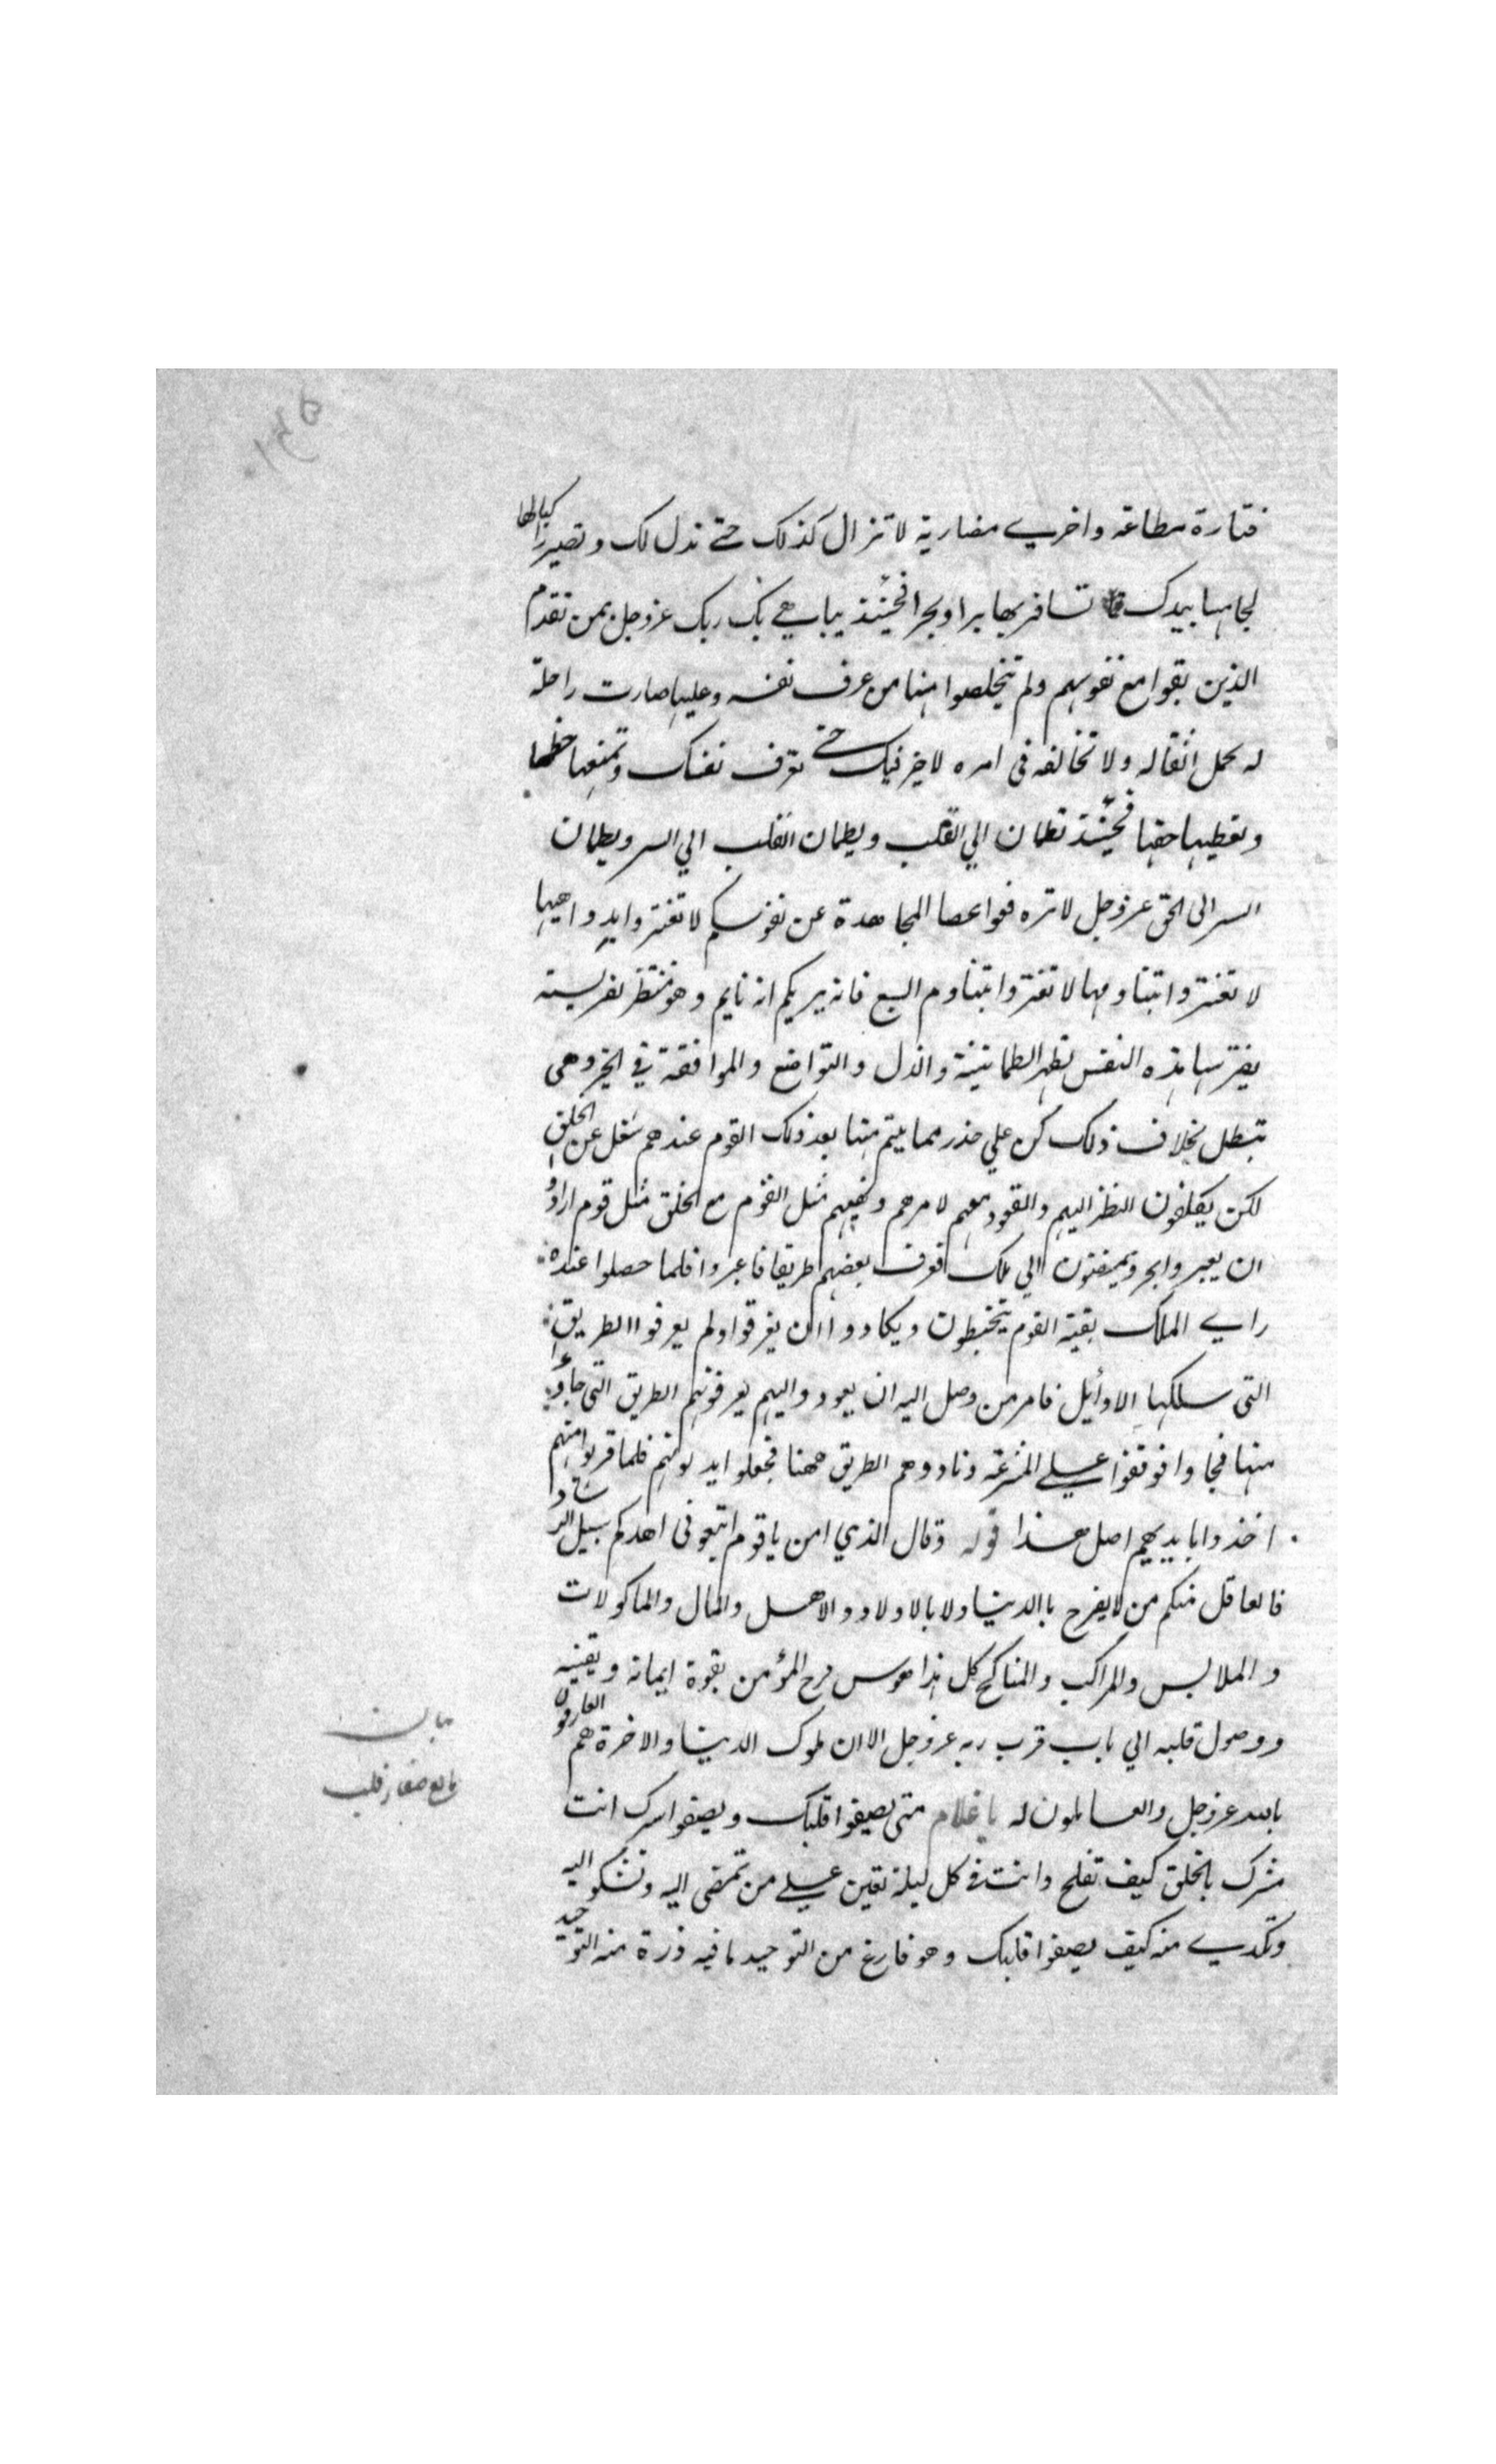 فتارة مطاعة واخرى مضاربة لا تزال كذلك حتى تذل لك وتصير راكبا لها
لجامها بيدك تسافر بها برا وبحرا فحينئذ يباهي بك ربك عزوجل بمن تقدم
الذين بقوا مع نفوسهم ولم يتخلصوا منها من عرف نفسه وعليها صارت راحلة
له تحمل اثقاله ولا تخالفه في امره لا خير فيك حتى تعرف نفسك وتمنعها حظها
وتعطيها حقها فحينئذ تطمان الي القلب ويطمان القلب الي السر ويطمان
السر الى الحق عزوجل لا ترفعوا عصا المجاهدة عن نفوسكم لا تغتروا بدواهيها
لا تغتروا بتناومها لا تغتروا بتناوم السبع فانه يريكم انه نايم وهو منتظر لفريسته
يفترسها هذه النفس تظهر الطمانينة والذل والتواضع والموافقة في الخير وهي
تبطل بخلاف ذلك كن علي حذر مما يتم منها بعد ذلك القوم عندهم شغل عن الخلق
لكن يكلفون النظر اليهم والقعود معهم لامرهم ونهيهم مثل القوم مع الخلق مثل قوم ارادوا
ان يعبروا بحر ويمضون الي ملك فوف بعضهم طريقا فاعبروا فلما حصلوا عنده
راى الملك بقية القوم يتخبطون ويكادوا ان يغرقوا ولم يعرفوا الطريق
التى سلكها الاوائل فامر من وصل اليه ان يعودوا اليهم يعرفونهم الطريق التى جاؤا
منها فجاوا فوقفوا علي المشرعة ونادوهم الطريق ههنا فجعلوا يدلونهم فلما قربوا منهم
اخذوا بايديهم اصل هذا قوله وقال الذي امن يا قوم اتبعونى اهدكم سبيل الرشاد
فالعاقل منكم من لا يفرح باالدنيا ولا بالاولاد والاهل والمال والماكولات
والملابس والمراكب والمناكح كل هذا هوس فرح المؤمن بقوة ايمانه ويقينه
ووصول قلبه الي باب قرب ربه عزوجل الا ان ملوك الدنيا والاخرة هم العارفون
بالله عزوجل والعاملون له يا غلام متى يصفوا قلبك ويصفوا سرك انت
مشرك بالخلق كيف تفلح وانت في كل ليلة تعين علي من تمضى اليه وتشكو اليه
وتكدي منه كيف يصفوا قلبك وهو فارغ من التوحيد ما فيه ذرة منه التوحيد
بيان